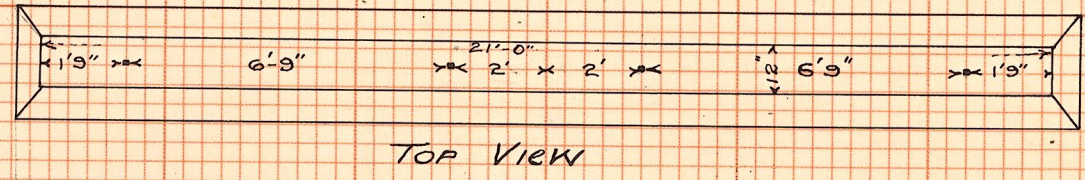 21'-0"
1'9" 6'-9" 2' 2' 12" 6'9" 1'9"
TOP VIEW